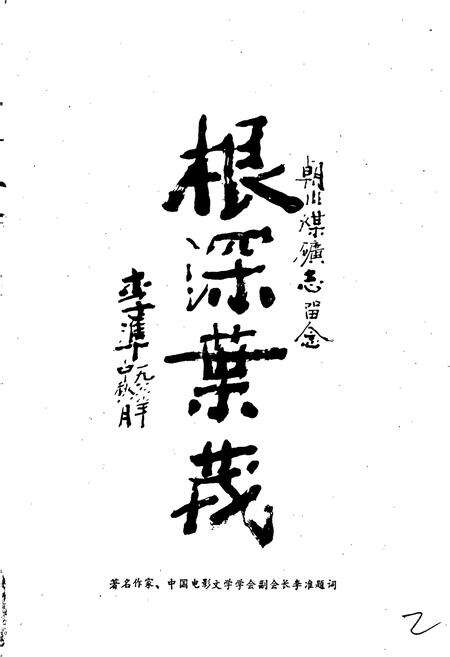 朝川煤礦志留念
根深葉茂
李準
一九八六年
著名作家、中国电影文学学会副会长李准题词